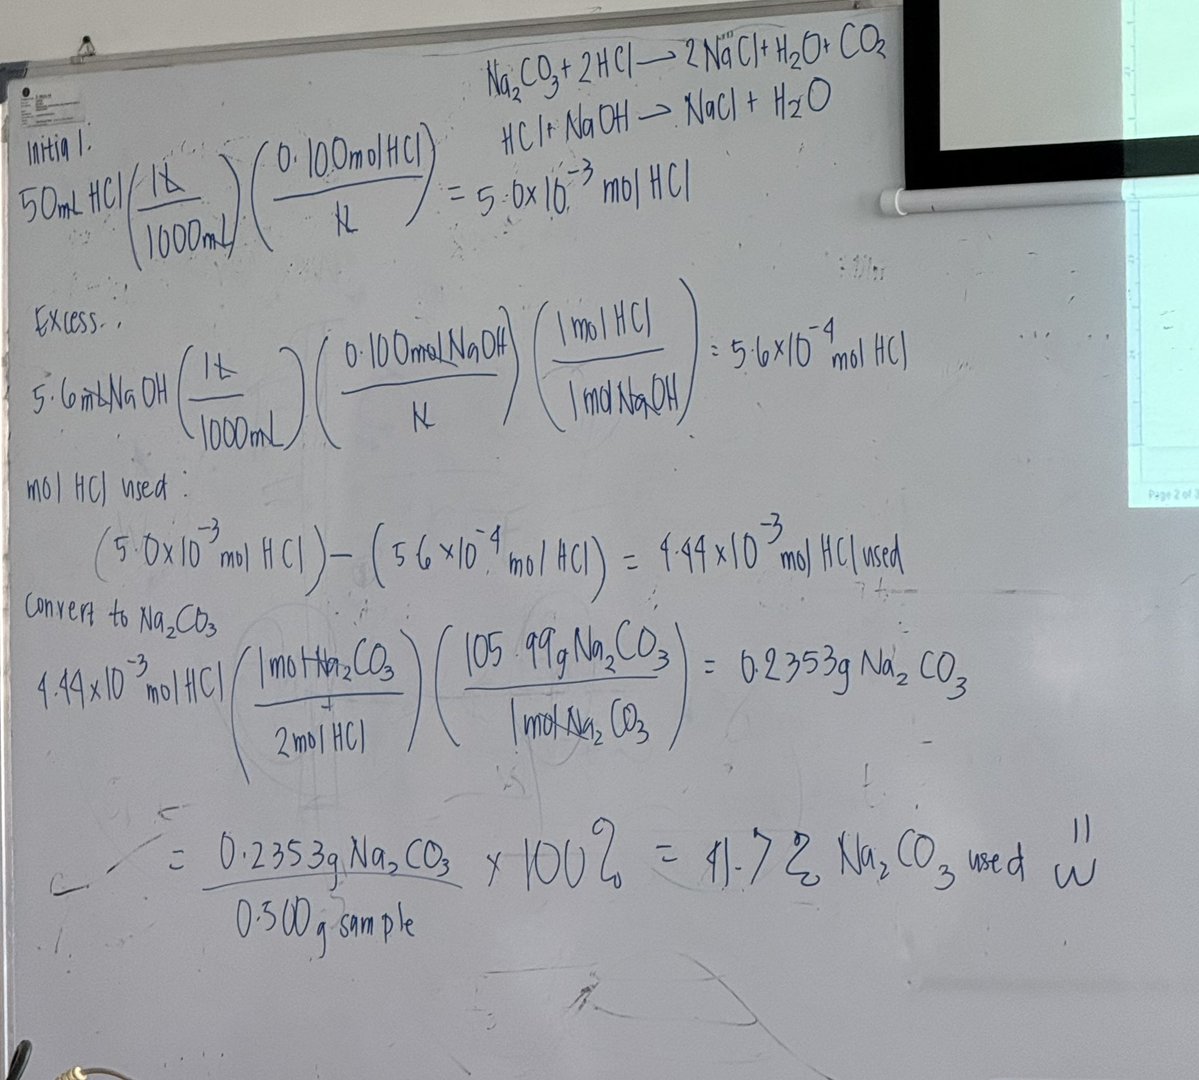 Na₂CO₃ + 2HCl → 2NaCl + H₂O + CO₂
HCl + NaOH → NaCl + H₂O
Initial:
50mL HCl (1L / 1000mL) (0.100mol HCl / L) = 5.0x10⁻³ mol HCl
Excess:
5.6mL NaOH (1L / 1000mL) (0.100mol NaOH / L) (1mol HCl / 1mol NaOH) = 5.6x10⁻⁴ mol HCl
mol HCl used:
(5.0x10⁻³ mol HCl) - (5.6x10⁻⁴ mol HCl) = 4.44x10⁻³ mol HCl used
Convert to Na₂CO₃
4.44x10⁻³ mol HCl (1mol Na₂CO₃ / 2mol HCl) (105.99g Na₂CO₃ / 1mol Na₂CO₃) = 0.2353g Na₂CO₃
= 0.2353g Na₂CO₃ / 0.500g sample x 100% = 41.7% Na₂CO₃ used
Page 2 of 3